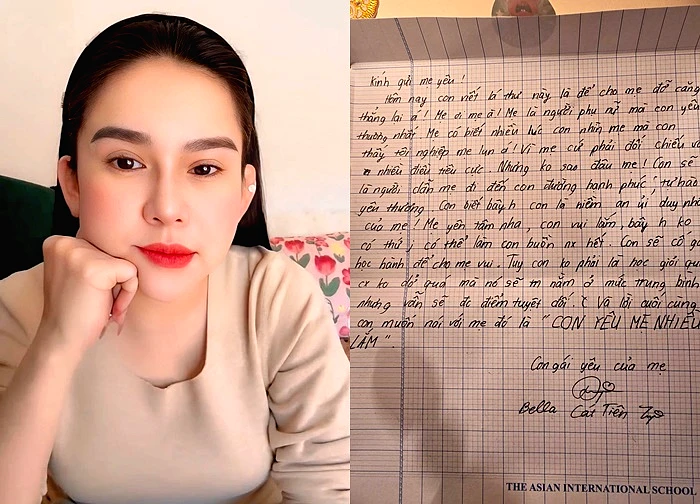 Kính gửi mẹ yêu !
Hôm nay con viết bí thư này là để cho mẹ đỡ căng
thẳng lại ạ ! Mẹ ơi mẹ à ! Mẹ là người phụ nữ mà con yêu
thương nhất. Mẹ có biết nhiều lúc con nhìn mẹ mà con
thấy tội nghiệp mẹ lun á ! Vì mẹ cứ phải đối chiếu vớ
nhiều điều tiêu cực. Nhưng ko sao đâu mẹ ! Con sẽ
là người dẫn mẹ đi đến con đường hạnh phúc, tự hào
yêu thương. Con biết bây h con là niềm an ủi duy nhấ
của mẹ ! Mẹ yên tâm nha, con vui lắm, bây h ko
có thứ j có thể làm con buồn nx hết. Con sẽ cố g
học hành để cho mẹ vui. Tuy con ko phải là học giỏi quá
cx ko dở quá mà nó sẽ nằm ở mức trung bình
nhưng vẫn sẽ đc điểm tuyệt đối. Và lời cuối cùng
con muốn nói với mẹ đó là " CON YÊU MẸ NHIỀU
LẮM ".
Con gái yêu của mẹ
Bella Cát Tiên
THE ASIAN INTERNATIONAL SCHOOL